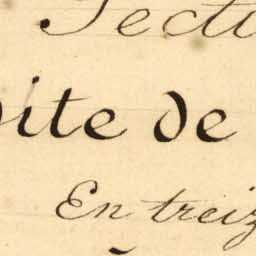 Secti
oite de
En treiz